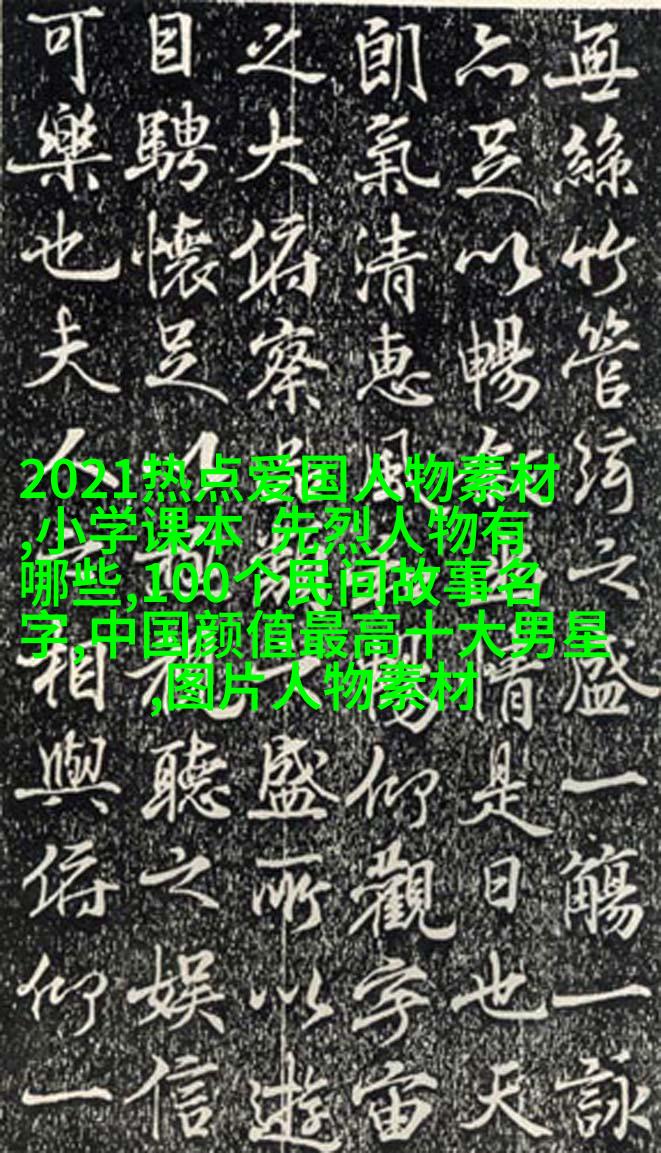 無絲竹管絃之盛一觴一詠
亦足以暢情是日也天
朗氣清惠風暢仰觀宇宙
之大俯察盛所以遊
目騁懷足聽之娛信
可樂也夫人相與俯仰一
2021热点爱国人物素材
,小学课本 先烈人物有
哪些,100个民间故事名
字,中国颜值最高十大男星
,图片人物素材